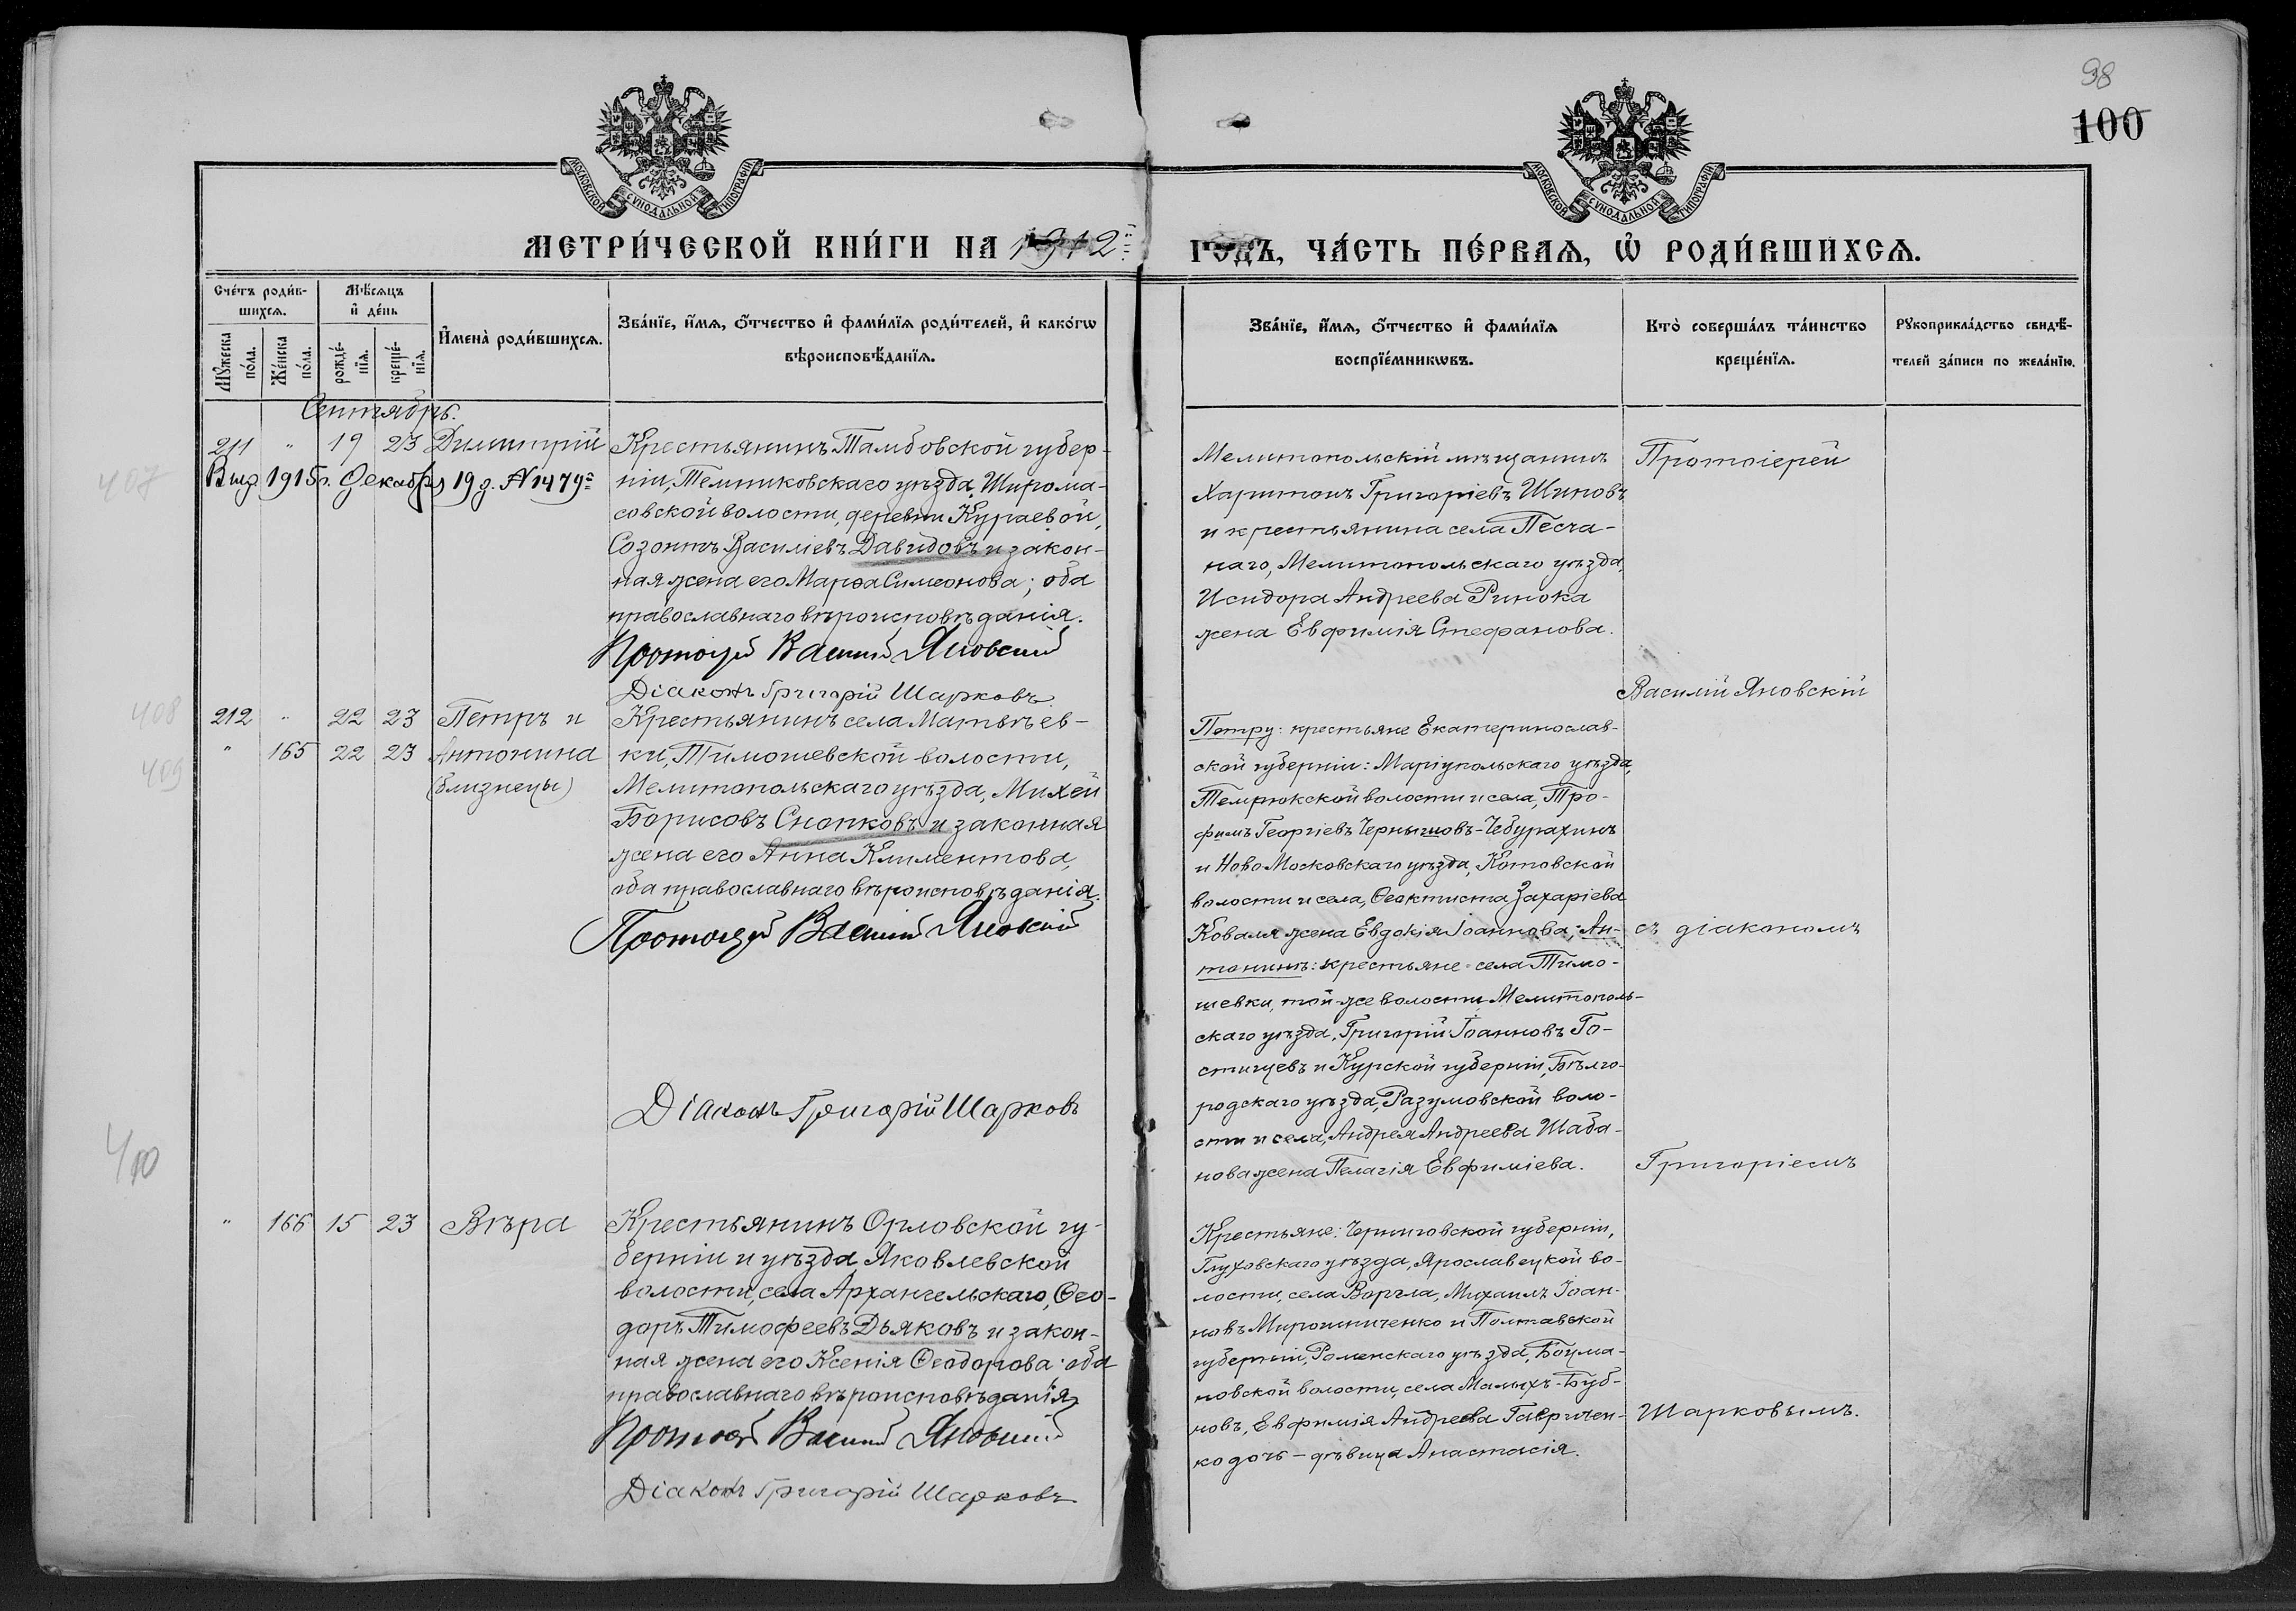 98
100
МОСКОВСКОЙ СѴНОДАЛЬНОЙ ТИПОГРАФІИ
МОСКОВСКОЙ СѴНОДАЛЬНОЙ ТИПОГРАФІИ
МЕТРИ́ЧЕСКОЙ КНИ́ГИ НА 1912й
ГОДЪ, ЧА́СТЬ ПЕ́РВАѦ, Ѡ҆ РОДИ́ВШИХСѦ.
Сче́тъ роди́в-
шихсѧ.
Мꙋ́жеска по́ла.
Же́нска по́ла.
Мѣ́сѧцъ
и҆ де́нь
рожде́-
нїѧ.
креще́-
нїѧ.
И҆мена̀ роди́вшихсѧ.
Зва́нїе, и҆́мѧ, ѻ҆́тчество и҆ фами́лїѧ роди́телей, и҆ како́гѡ
вѣроисповѣ́данїѧ.
Зва́нїе, и҆́мѧ, ѻ҆́тчество и҆ фами́лїѧ
воспрїе́мникѡвъ.
Кто̀ соверша́лъ та́инство
креще́нїѧ.
Рꙋкоприкла́дство свидѣ́-
телей за́писи по жела́нїю.
Сентябрь.
407
211 " 19 23 Димитрій
Выд. 1915 г. Декабря 19 д. № 1479
Крестьянинъ Тамбовской губер-
ніи, Темниковскаго уѣзда, Широма-
совской волости, деревни Кураевой,
Созонтъ Василіевъ Давидовъ и закон-
ная жена его Марѳа Симеонова; оба
православнаго вѣроисповѣданія.
Протоіерей Василій Яновскій
Діаконъ Григорій Шарковъ.
Мелитопольскій мѣщанинъ
Харитонъ Григоріевъ Шиповъ
и крестьянина села Песча-
наго, Мелитопольскаго уѣзда,
Исидора Андреева Ринока
жена Евфимія Стефанова.
Протоіерей
Василій Яновскій
408
409
212 " 22 23 Петръ и
" 165 22 23 Антонина
(близнецы)
Крестьянинъ села Матвѣев-
ки, Тимошевской волости,
Мелитопольскаго уѣзда, Михей
Борисовъ Снопковъ и законная
жена его Анна Климентова,
оба православнаго вѣроисповѣданія.
Протоіерей Василій Яновскій
Діаконъ Григорій Шарковъ
Петру: крестьяне Екатеринослав-
ской губерніи: Маріупольскаго уѣзда,
Темрюкской волости и села, Тро-
фимъ Георгіевъ Чернышовъ-Чебурахинъ
и Ново Московскаго уѣзда, Котовской
волости и села, Ѳеоктиста Захаріева
Коваля жена Евдокія Іоаннова; Ан-
тонинѣ: крестьяне села Тимо-
шевки, той-же волости, Мелитополь-
скаго уѣзда, Григорій Іоанновъ Го-
стищевъ и Курской губерніи, Бѣлго-
родскаго уѣзда, Разумовской воло-
сти и села, Андрея Андреева Шаба-
нова жена Пелагія Евфиміева.
съ діакономъ
Григоріемъ
410
" 166 15 23 Вѣра
Крестьянинъ Орловской гу-
берніи и уѣзда Яковлевской
волости, села Архангельскаго, Ѳео-
доръ Тимофеевъ Дьяковъ и закон-
ная жена его Ксенія Ѳеодорова; оба
православнаго вѣроисповѣданія
Протоіерей Василій Яновскій
Діаконъ Григорій Шарковъ
Крестьяне: Черниговской губерніи,
Глуховскаго уѣзда, Ярославецкой во-
лости, села Воргла, Михаилъ Іоан-
новъ Мирошниченко и Полтавской
губерніи, Роменскаго уѣзда, Бацма-
новской волости, села Малыхъ-Буб-
новъ, Евфимія Андреева Гавричен-
ко дочь – дѣвица Анастасія.
Шарковымъ.